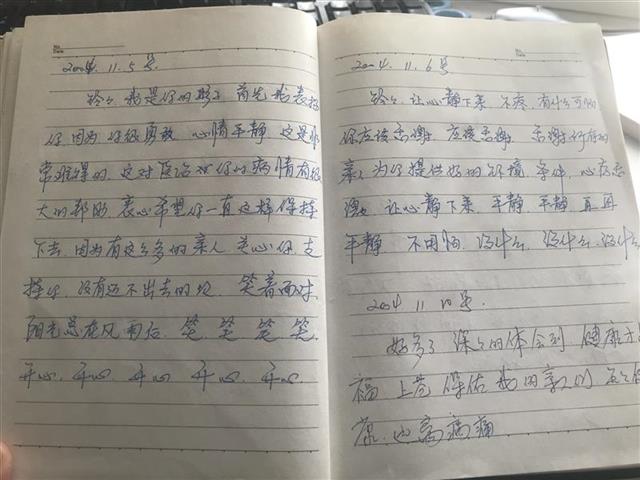 2004. 11. 5号.
我是你的影子, 首先我表扬
你, 因为你很勇敢 心情平静 这是非
常难得的 这对医治好你的病情有很
大的帮助 衷心希望你一直这样保持
下去. 因为有这么多的亲人 关心你. 支
持你. 没有过不出去的坎. 笑着面对
阳光总在风雨后. 笑 笑 笑 笑.
开心. 开心. 开心 开心. 开心.
2004. 11. 6号
让心静下来 不疼. 有什么可怕
你应该感谢 应该感谢. 感谢 你的
亲人 为你提供好的环境 条件. 心在
让心静下来. 平静 平静 再再
平静. 不用怕. 没什么. 没什么. 没什么
2004 11 10号.
好多了 深深的体会到 健康才
福 上苍 保佑 我的亲人们
康.